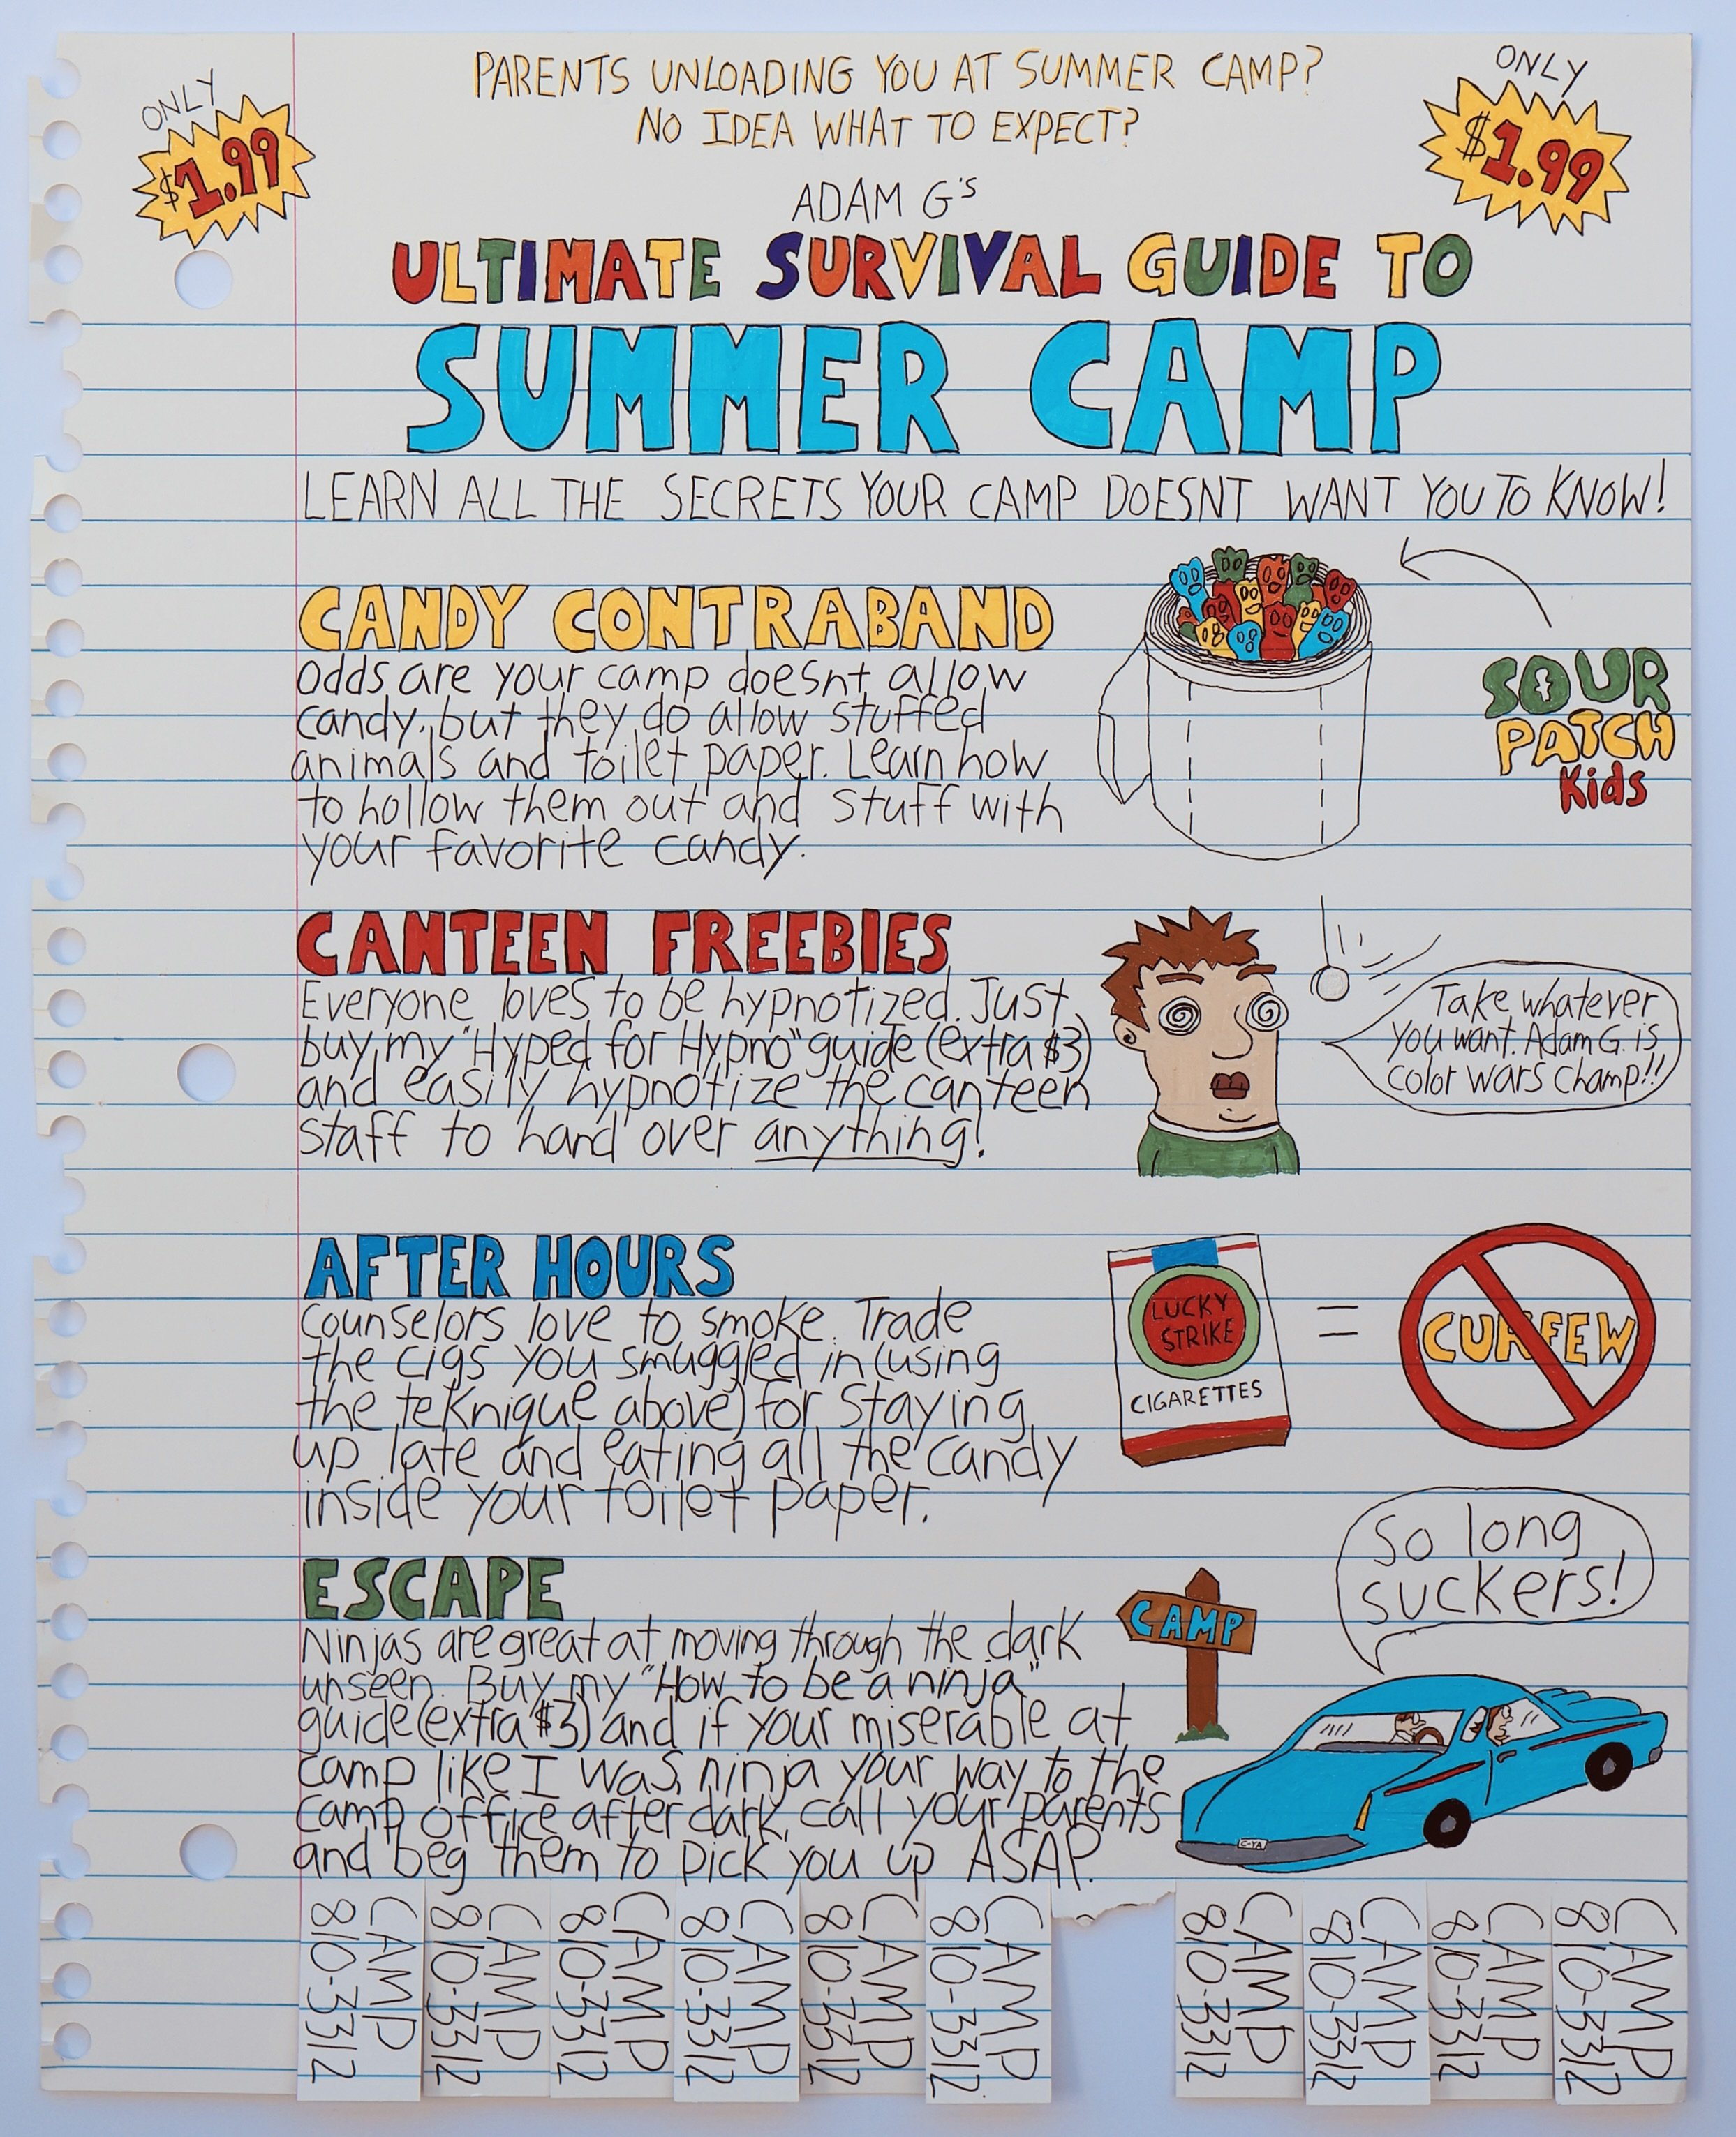 PARENTS UNLOADING YOU AT SUMMER CAMP?
NO IDEA WHAT TO EXPECT?
ONLY
$1.99
ONLY
$1.99
ADAM G's
ULTIMATE SURVIVAL GUIDE TO
SUMMER CAMP
LEARN ALL THE SECRETS YOUR CAMP DOESNT WANT YOU TO KNOW!
CANDY CONTRABAND
Odds are your camp doesnt allow
candy, but they do allow stuffed
animals and toilet paper. Learn how
to hollow them out and stuff with
your favorite candy.
SOUR
PATCH
Kids
CANTEEN FREEBIES
Everyone loves to be hypnotized. Just
buy my "Hyped for Hypno" guide (extra $3)
and easily hypnotize the canteen
staff to hand over anything!
Take whatever
you want. Adam G. is
color wars champ!!
AFTER HOURS
Counselors love to smoke. Trade
the cigs you smuggled in (using
the teknique above) for staying
up late and eating all the candy
inside your toilet paper.
LUCKY
STRIKE
CIGARETTES
=
CURFEW
ESCAPE
Ninjas are great at moving through the dark
unseen. Buy my "How to be a ninja"
guide (extra $3) and if your miserable at
camp like I was, ninja your way to the
camp office after dark, call your parents
and beg them to pick you up ASAP.
CAMP
So long
suckers!
C-YA
CAMP
810-3312
CAMP
810-3312
CAMP
810-3312
CAMP
810-3312
CAMP
810-3312
CAMP
810-3312
CAMP
810-3312
CAMP
810-3312
CAMP
810-3312
CAMP
810-3312